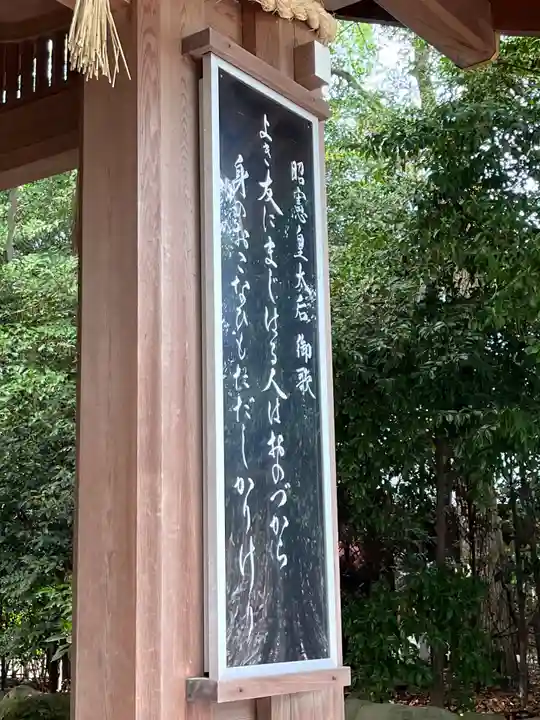 昭憲皇太后 御歌
よき友にまじはる人はおのづから
身のおこなひもたゞしかりけり